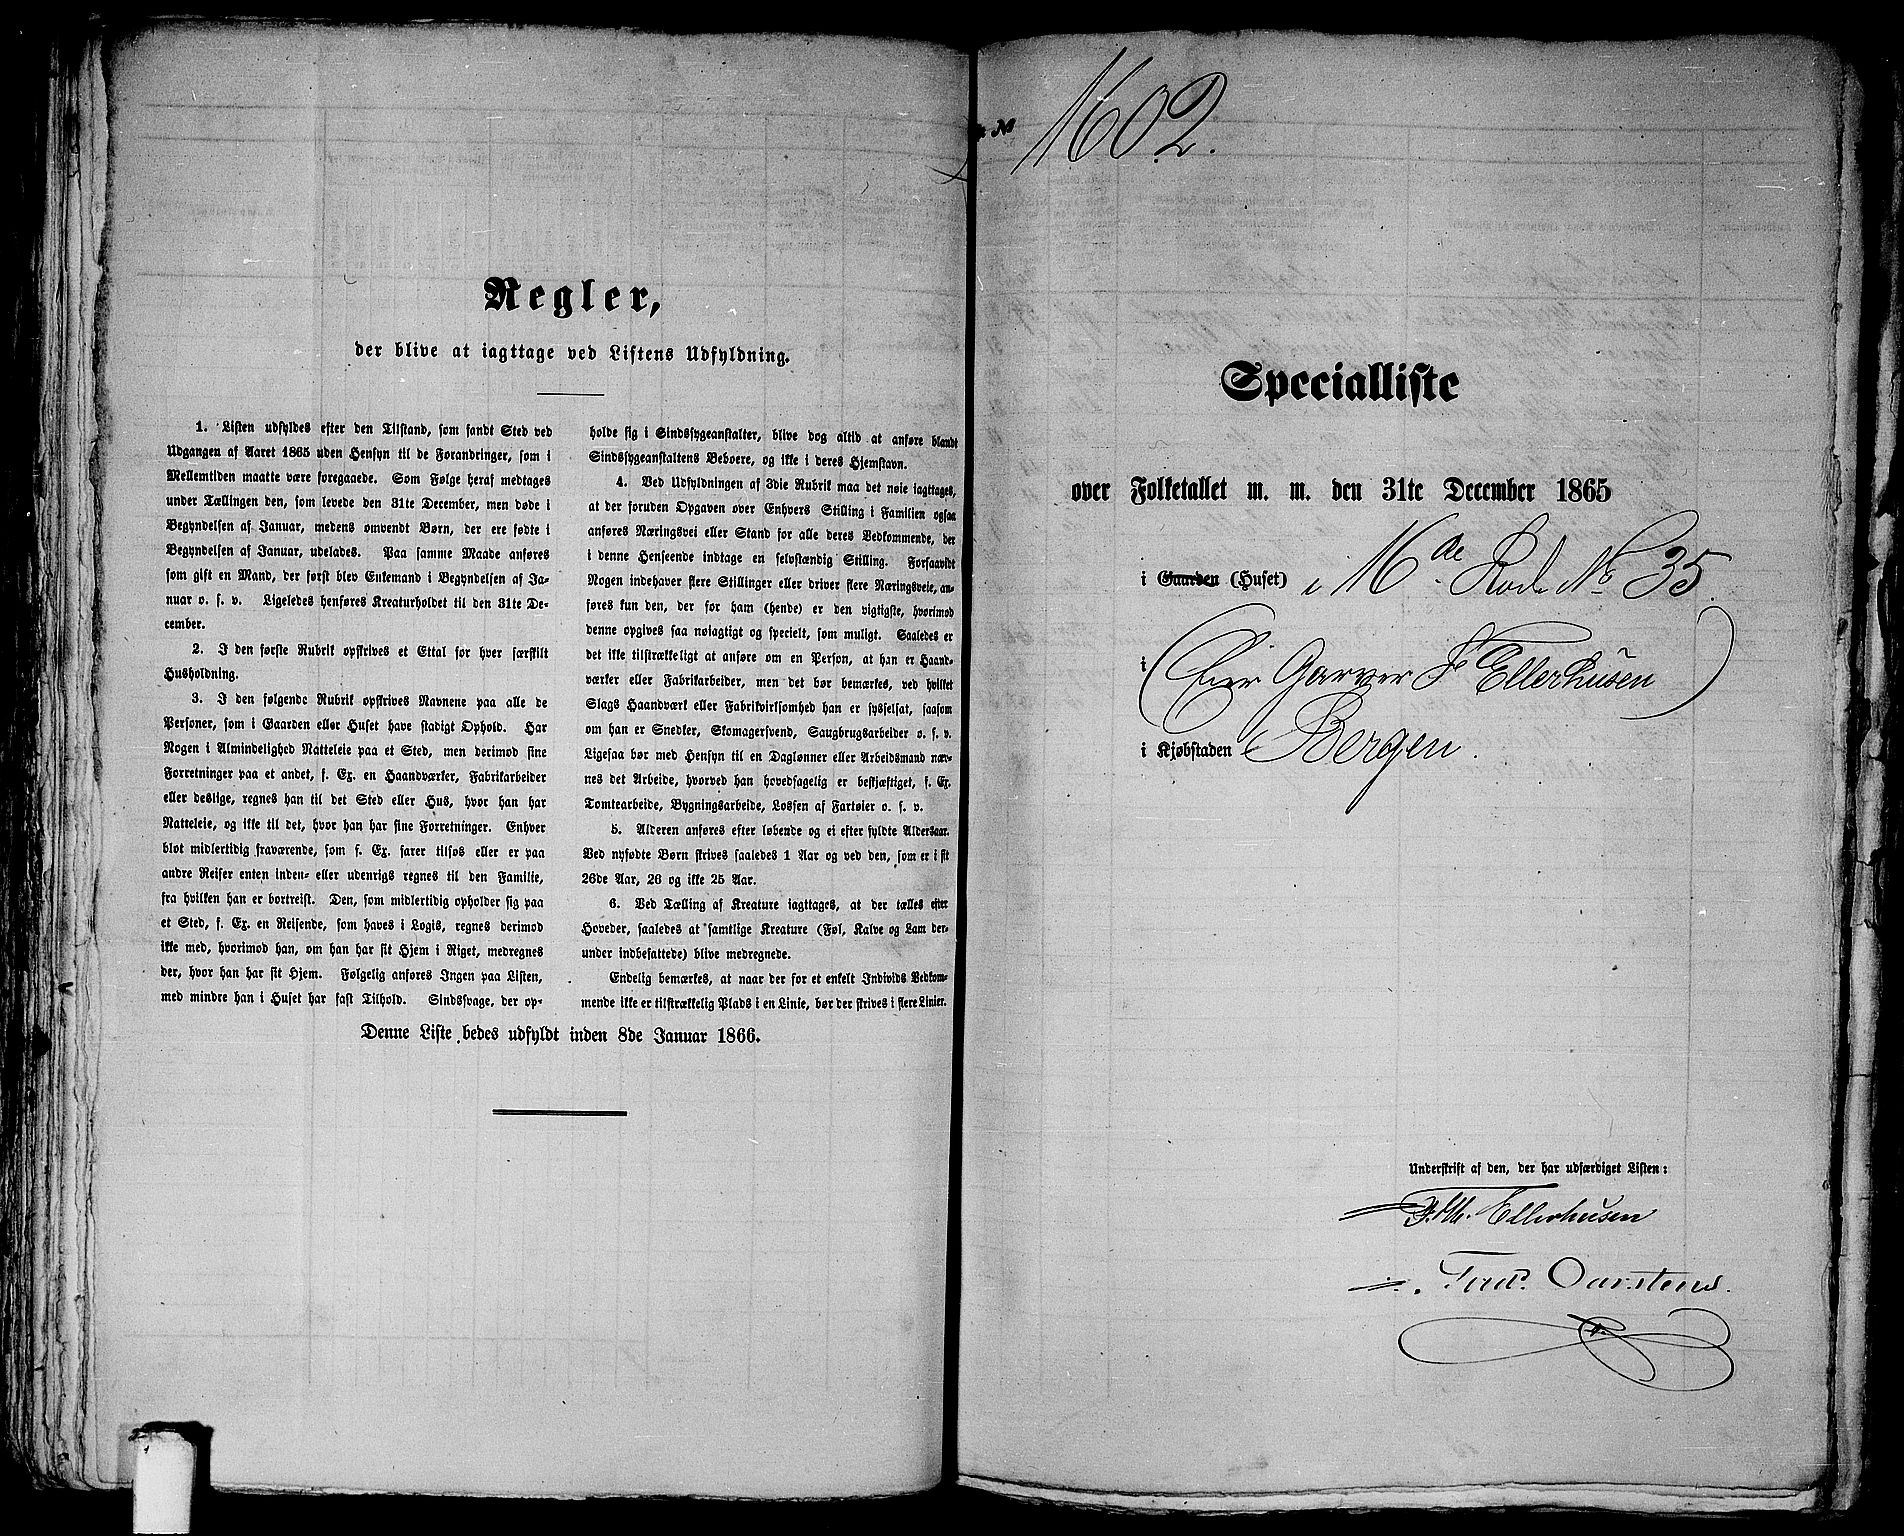 Regler,
der blive at iagttage ved Listens Udfyldning.
1. Listen udfyldes efter den Tilstand, som fandt Sted ved
Udgangen af Aaret 1865 uden Hensyn til de Forandringer, som i
Mellemtiden maatte være foregaaede. Som Følge heraf medtages
under Tællingen den, som levede den 31te December, men døde i
Begyndelsen af Januar, medens omvendt Børn, der ere fødte i
Begyndelsen af Januar, udelades. Paa samme Maade anføres
som gift en Mand, der først blev Enkemand i Begyndelsen af Ja-
nuar o. s. v. Ligeledes henføres Kreaturholdet til den 31te De-
cember.
2. I den første Rubrik opskrives et Ettal for hver særskilt
Husholdning.
3. I den følgende Rubrik opskrives Navnene paa alle de
Personer, som i Gaarden eller Huset have stadigt Ophold. Har
Nogen i Almindelighed Natteleie paa et Sted, men derimod sine
Forretninger paa et andet, f. Ex. en Haandværker, Fabrikarbeider
eller deslige, regnes han til det Sted eller Hus, hvor han har
Natteleie, og ikke til det, hvor han har sine Forretninger. Enhver
blot midlertidig fraværende, som f. Ex. farer tilsøs eller er paa
andre Reiser enten inden- eller udenrigs regnes til den Familie,
fra hvilken han er bortreist. Den, som midlertidig opholder sig paa
et Sted, f. Ex. en Reisende, som haves i Logis, regnes derimod
ikke med, hvorimod han, om han har sit Hjem i Riget, medregnes
der, hvor han har sit Hjem. Følgelig anføres Ingen paa Listen,
med mindre han i Huset har fast Tilhold. Sindssvage, der op-
holde sig i Sindssygeanstalter, blive dog altid at anføre blandt
Sindssygeanstaltens Beboere, og ikke i deres Hjemstavn.
4. Ved Udfyldningen af 3die Rubrik maa det nøie iagttages,
at der foruden Opgaven over Enhvers Stilling i Familien ogsaa
anføres Næringsvei eller Stand for alle deres Vedkommende, der
i denne Henseende indtage en selvstændig Stilling. Forsaavidt
Nogen indehaver flere Stillinger eller driver flere Næringsveie, an-
føres kun den, der for ham (hende) er den vigtigste, hvorimod
denne opgives saa nøiagtigt og specielt, som muligt. Saaledes er
det ikke tilstrækkeligt at anføre om en Person, at han er Haand-
værker eller Fabrikarbeider, men det bør bemærkes, ved hvilket
Slags Haandværk eller Fabrikvirksomhed han er sysselsat, saasom
om han er Snedker, Skomagersvend, Saugbrugsarbeider o. s. v.
Ligesaa bør med Hensyn til en Daglønner eller Arbeidsmand næv-
nes det Arbeide, hvorved han hovedsagelig er beskjæftiget, f. Ex.
Tomtearbeide, Bygningsarbeide, Lossen af Fartøier o. s. v.
5. Alderen anføres efter løbende og ei efter fyldte Aldersaar.
Ved nyfødte Børn skrives saaledes 1 Aar og ved den, som er i sit
26de Aar, 26 og ikke 25 Aar.
6. Ved Tælling af Kreature iagttages, at der tælles efter
Hoveder, saaledes at samtlige Kreature (Føl, Kalve og Lam der-
under indbefattede) blive medregnede.
Endelig bemærkes, at naar der for et enkelt Individs Vedkom-
mende ikke er tilstrækkelig Plads i en Linie, bør der skrives i flere Linier.
Denne Liste bedes udfyldt inden 8de Januar 1866.
No 1602.
Specialliste
over Folketallet m. m. den 31te December 1865
i Gaarden (Huset) i 16de Rode No 35.
i (Eier Garver F Ellerhusen)
i Kjøbstaden Bergen.
Underskrift af den, der har udfærdiget Listen:
Ellerhusen
Carstens.